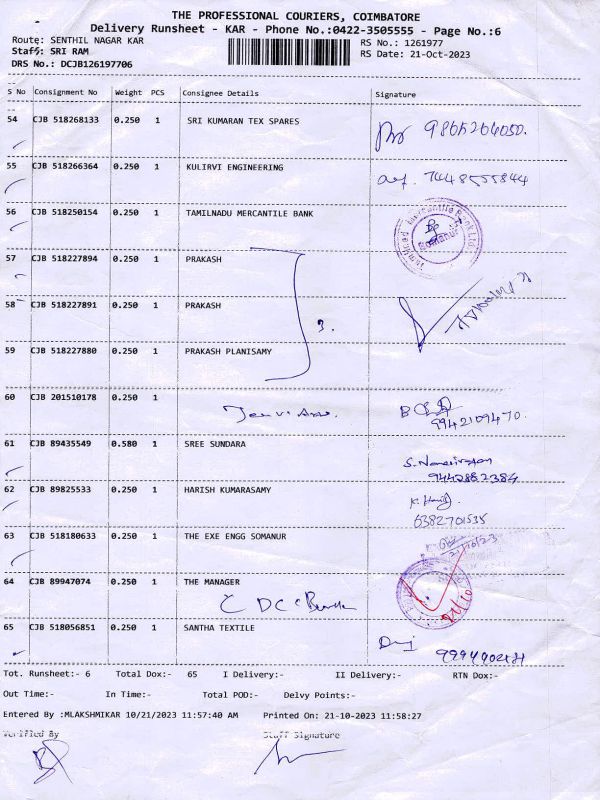 THE PROFESSIONAL COURIERS, COIMBATORE
Delivery Runsheet - KAR - Phone No.:0422-3505555 - Page No.:6
Route: SENTHIL NAGAR KAR
RS No.: 1261977
Staff: SRI RAM
RS Date: 21-Oct-2023
DRS No.: DCJB126197706
S No Consignment No Weight PCS Consignee Details Signature
54 CJB 518268133 0.250 1 SRI KUMARAN TEX SPARES
55 CJB 518266364 0.250 1 KULIRVI ENGINEERING 7448555844
56 CJB 518250154 0.250 1 TAMILNADU MERCANTILE BANK
Tamilnad Mercantile Bank Ltd
Somanur
57 CJB 518227894 0.250 1 PRAKASH
58 CJB 518227891 0.250 1 PRAKASH
3.
59 CJB 518227880 0.250 1 PRAKASH PLANISAMY
60 CJB 201510178 0.250 1
9942109470.
61 CJB 89435549 0.580 1 SREE SUNDARA
9442882384
62 CJB 89825533 0.250 1 HARISH KUMARASAMY
6382701535
63 CJB 518180633 0.250 1 THE EXE ENGG SOMANUR
21/10/23
64 CJB 89947074 0.250 1 THE MANAGER
21/10
65 CJB 518056851 0.250 1 SANTHA TEXTILE
Tot. Runsheet:- 6 Total Dox:- 65 I Delivery:- II Delivery:- RTN Dox:-
Out Time:- In Time:- Total POD:- Delvy Points:-
Entered By :MLAKSHMIKAR 10/21/2023 11:57:40 AM Printed On: 21-10-2023 11:58:27
Verified By Staff Signature